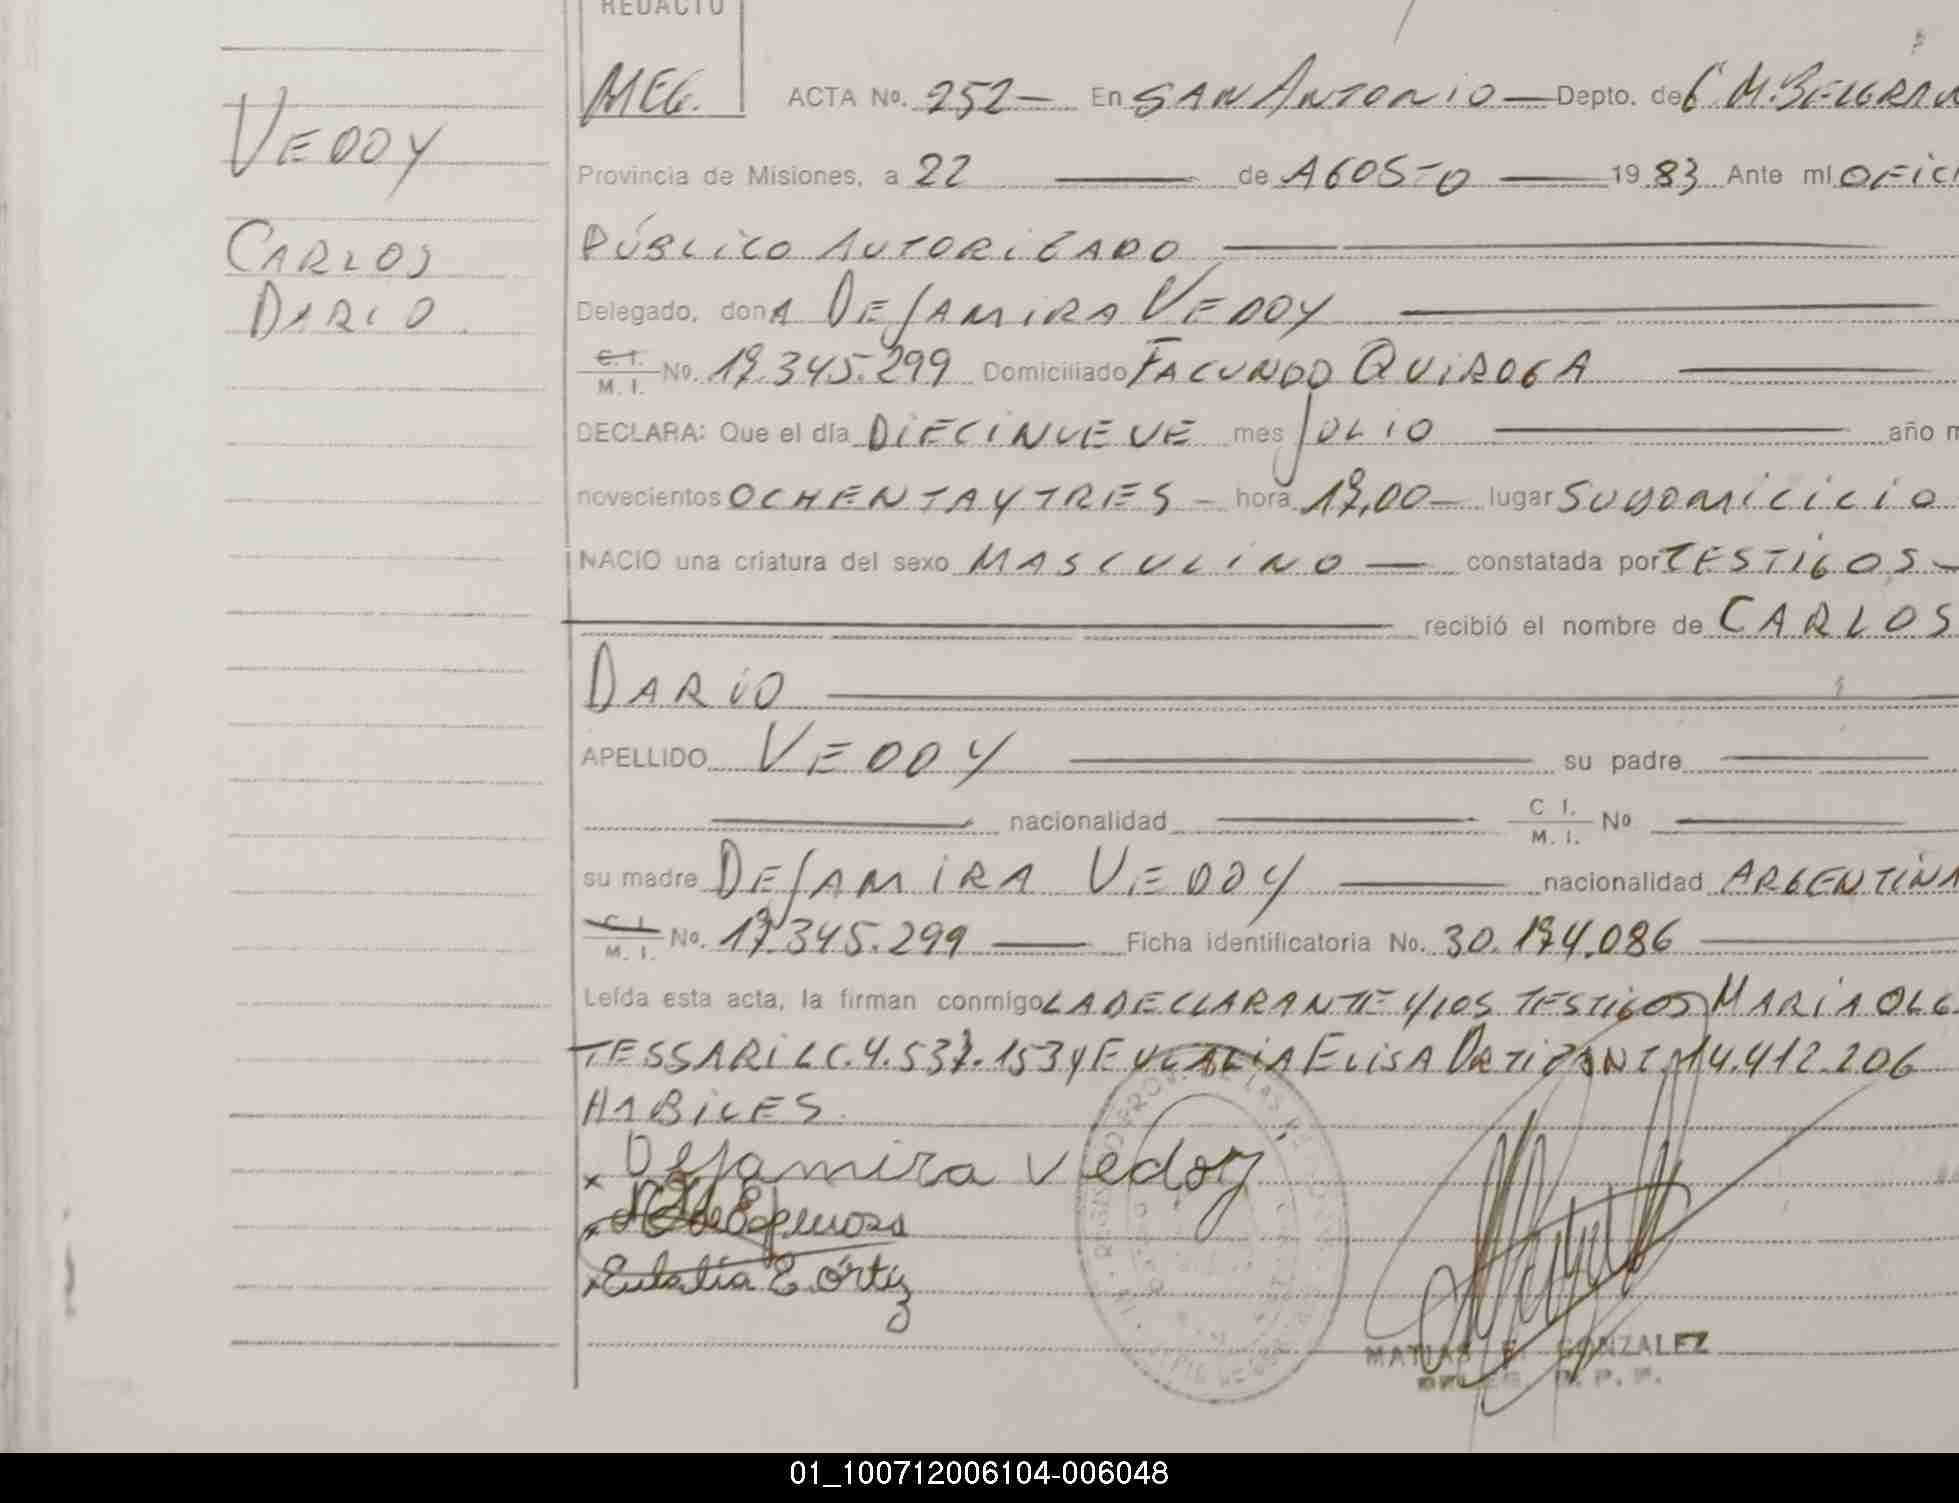 REDACTO
MEG. ACTA No. 252 — En SAN ANTONIO — Depto. de G M. BELGRAN
VEDOY
Provincia de Misiones, a 22 — de AGOSTO — 1983 Ante mi OFICI
CARLOS
PÚBLICO AUTORIZADO —
DARIO
Delegado, donA DEJAMIRA VEDOY —
C.I. / M.I. No. 17.345.299 Domiciliado FACUNDO QUIROGA —
DECLARA: Que el día DIECINUEVE mes JULIO — año m
novecientos OCHENTA Y TRES — hora 17,00 — lugar SU DOMICILIO
NACIO una criatura del sexo MASCULINO — constatada por TESTIGOS —
— recibió el nombre de CARLOS
DARIO —
APELLIDO VEDOY — su padre —
— nacionalidad — C I. / M. I. No —
su madre DEJAMIRA VEDOY — nacionalidad ARGENTINA
C.I. / M. I. No. 17.345.299 — Ficha identificatoria No. 30.174.086 —
Leída esta acta, la firman conmigo LA DECLARANTE Y LOS TESTIGOS MARIA OLG
TESSARI LC. 4.537.153 Y EULALIA ELISA ORTIZ DNI. 14.412.206
HABILES.
x Dejamira Vedoy
de Espinosa
x Eulalia E. Ortiz
MATIAS E. GONZALEZ
01_100712006104-006048